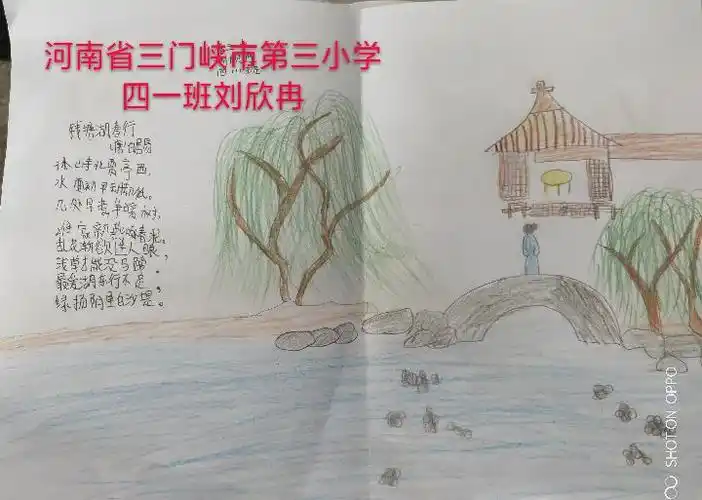 河南省三门峡市第三小学
四一班刘欣冉
钱塘湖春行
唐 白居易
山寺北贾亭西,
水面初平云脚低。
几处早莺争暖树,
谁家新燕啄春泥。
乱花渐欲迷人眼,
浅草才能没马蹄。
最爱湖东行不足,
绿杨阴里白沙堤。
SHOT ON OPPO